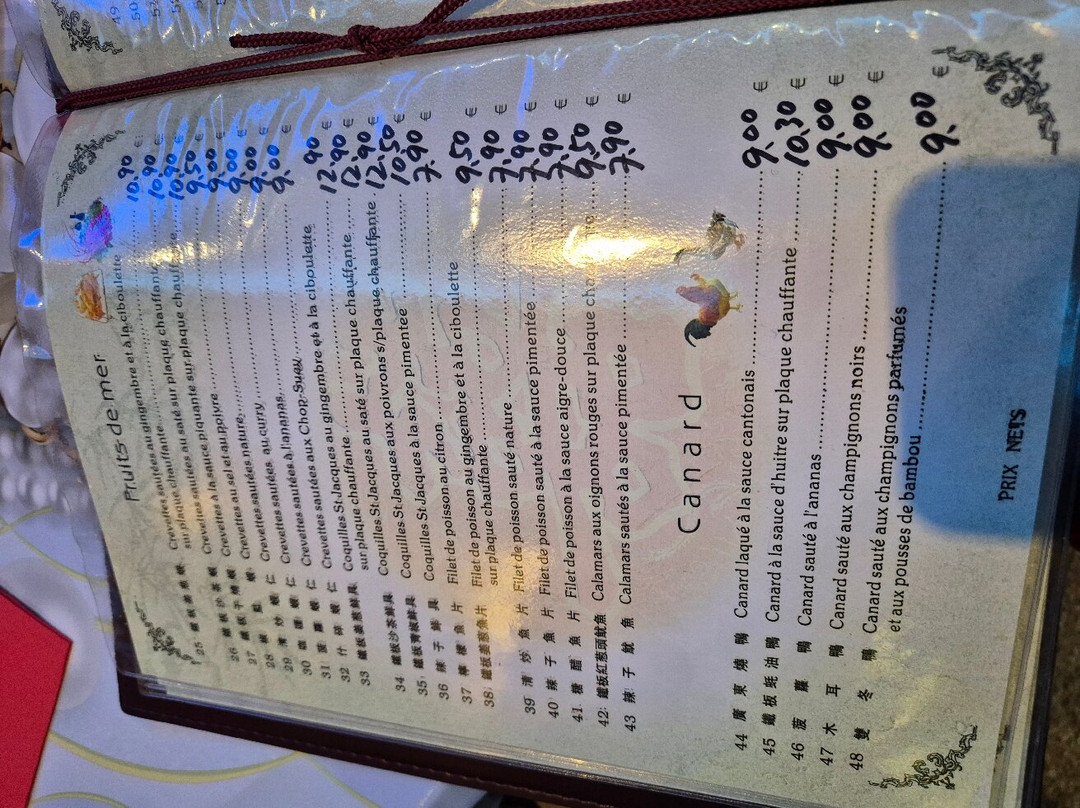 Fruits de mer
25 鐵板姜葱蝦 Crevettes sautées au gingembre et à la ciboulette
sur plaque chauffante 10.90 €
26 鐵板沙茶蝦 Crevettes sautées au saté sur plaque chauffante 10.90 €
Crevettes à la sauce piquante sur plaque chauffante 10.90 €
27 椒鹽蝦 Crevettes au sel et au poivre 9.50 €
28 Crevettes sautées nature 9.00 €
29 Crevettes sautées au curry 9.00 €
30 Crevettes sautées à l'ananas 9.00 €
31 Crevettes sautées aux Chop-Suey 9.00 €
32 Crevettes sautées au gingembre et à la ciboulette
33 鐵板姜葱鮮貝 Coquilles St Jacques au gingembre et à la ciboulette
sur plaque chauffante 12.90 €
34 鐵板沙茶鮮貝 Coquilles St Jacques au saté sur plaque chauffante 12.90 €
35 鐵板青椒鮮貝 Coquilles St Jacques aux poivrons s/plaque chauffante 12.50 €
36 辣子鮮貝 Coquilles St Jacques à la sauce pimentée 10.50 €
37 檸檬魚片 Filet de poisson au citron 7.90 €
38 鐵板姜葱魚片 Filet de poisson au gingembre et à la ciboulette
sur plaque chauffante 9.50 €
39 清炒魚片 Filet de poisson sauté nature 7.90 €
40 辣子魚片 Filet de poisson sauté à la sauce pimentée 7.90 €
41 糖醋魚片 Filet de poisson à la sauce aigre-douce 7.90 €
42 鐵板紅葱頭魷魚 Calamars aux oignons rouges sur plaque chauffante 9.50 €
43 辣子魷魚 Calamars sautés à la sauce pimentée 7.90 €
Canard
44 廣東燒鴨 Canard laqué à la sauce cantonais 9.00 €
45 鐵板蚝油鴨 Canard à la sauce d'huitre sur plaque chauffante 10.30 €
46 菠蘿鴨 Canard sauté à l'ananas 9.00 €
47 木耳鴨 Canard sauté aux champignons noirs 9.00 €
48 雙冬鴨 Canard sauté aux champignons parfumés
et aux pousses de bambou 9.00 €
PRIX NETS